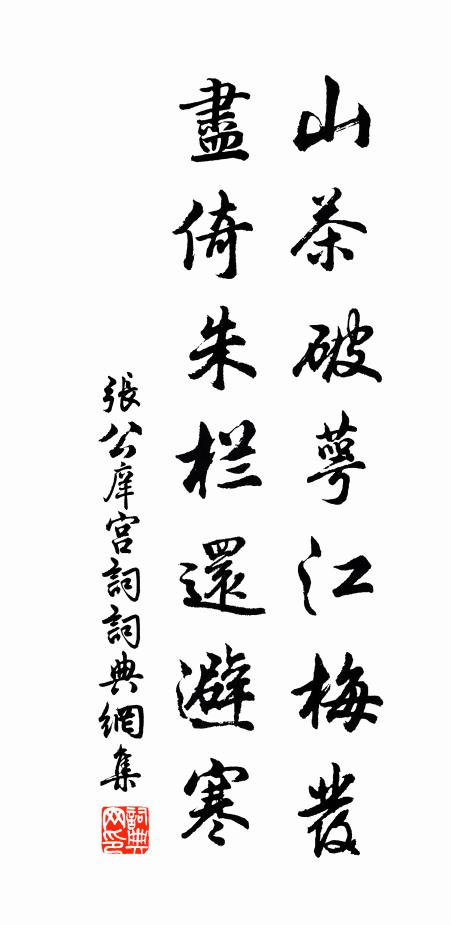 山茶破萼江梅發
盡倚朱栏還避寒
張公庠宫詞詞典網集
詞典网印